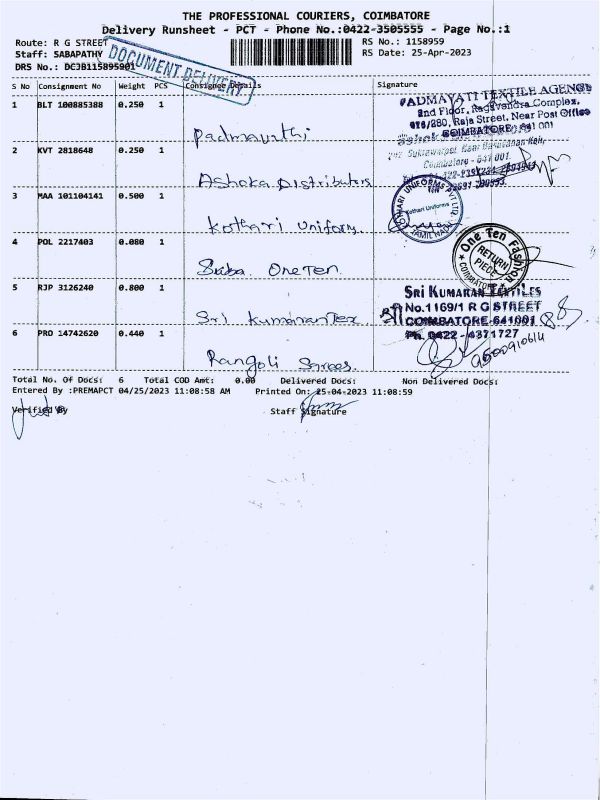 THE PROFESSIONAL COURIERS, COIMBATORE
Delivery Runsheet - PCT - Phone No.:0422-3505555 - Page No.:1
Route: R G STREET
RS No.: 1158959
Staff: SABAPATHY
RS Date: 25-Apr-2023
DRS No.: DCJB1158959001
DOCUMENT DELIVERY
S No Consignment No Weight PCS Consignee Details Signature
1 BLT 100885388 0.250 1 Padmavathi
PADMAVATI TEXTILE AGENCY
2nd Floor, Ragavendra Complex,
Raja Street, Near Post Office
COIMBATORE 641 001
2 KVT 2818648 0.250 1 Ashoka Distributors
Coimbatore - 641 001.
3 MAA 101104141 0.500 1 Kothari Uniform
KOTHARI UNIFORMS PVT LTD.
Kothari Uniforms
TAMIL NADU
4 POL 2217403 0.080 1 Saiba One Ten
One Ten Fashion
RETURN
PIECE
COIMBATORE
5 RJP 3126240 0.800 1 Sri Kumaran Tex
SRI KUMARAN TEXTILES
No.1169/1 R G STREET
COIMBATORE-641001
Ph. 0422 - 4371727
6 PRO 14742620 0.440 1 Rangoli Srees.
9600910614
Total No. Of Docs: 6 Total COD Amt: 0.00 Delivered Docs: Non Delivered Docs:
Entered By :PREMAPCT 04/25/2023 11:08:58 AM Printed On: 25-04-2023 11:08:59
Verified By
Staff Signature